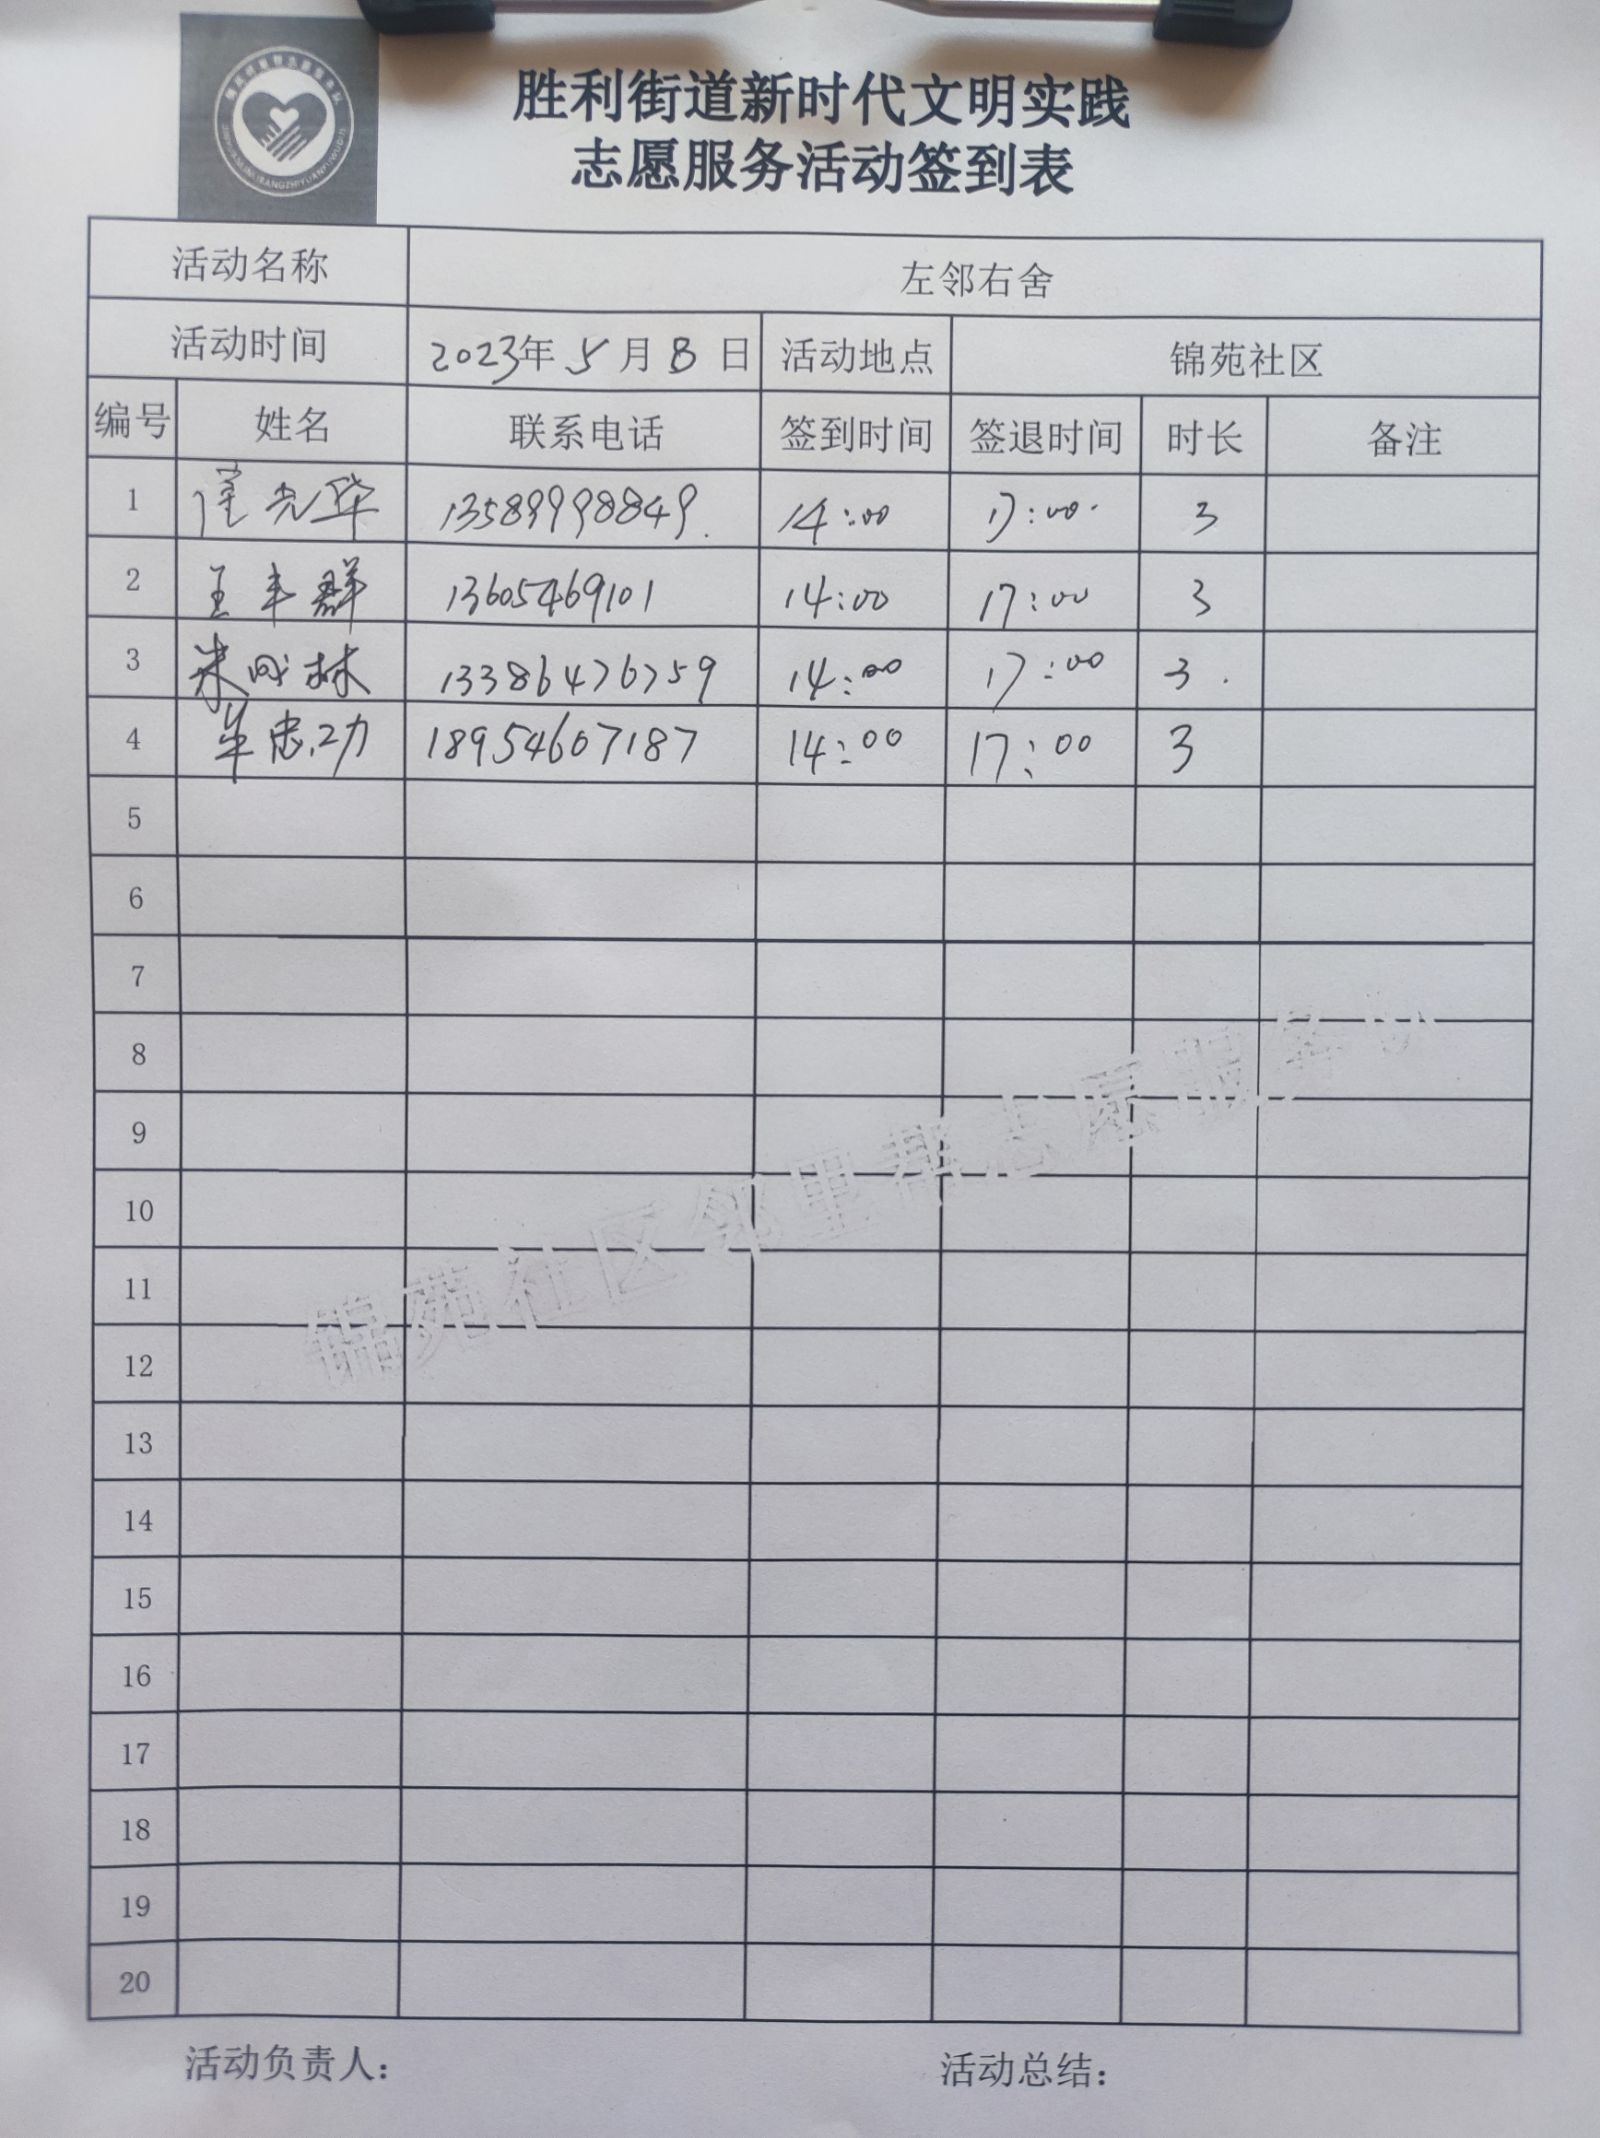 胜利街道新时代文明实践
志愿服务活动签到表
活动名称 左邻右舍
活动时间 2023年 5月 8日 活动地点 锦苑社区
编号 姓名 联系电话 签到时间 签退时间 时长 备注
1 崔光华 13589998849. 14:00 17:00. 3
2 王丰群 13605469101 14:00 17:00 3
3 朱 林 13386476759 14:00 17:00 3.
4 牟忠功 18954607187 14:00 17:00 3
5
6
7
8
9
10
11
12
13
14
15
16
17
18
19
20
锦苑社区邻里帮志愿服务队
活动负责人: 活动总结: